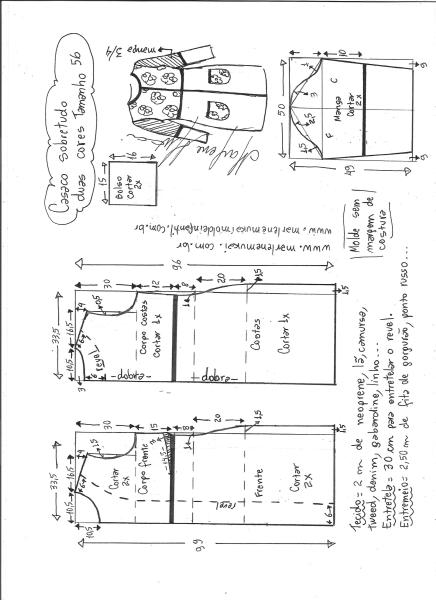 Casaco sobretudo
duas cores tamanho 56
manga 3/4
Marlene Mukai
15
16
Bolso
Cortar
2x
50
49
10
1
3
2,5
1,5
F
C
Manga
Cortar
2x
6
6
www.marlenemukai.com.br
www.marlenemukai/moldeinfantil.com.br
Molde sem
margem de
costura
33,5
10,5
16,5
4
30
12
8
20
1,5
96
3
0,5
revel
Corpo costas
Cortar 1x
dobra
dobra
Costas
Cortar 1x
1,5
33,5
10,5
16,5
4
30
15
8
20
1,5
99
10,5
1,5
Cortar
2x
Corpo frente
3
1
revel
Frente
Cortar
2x
6
1,5
Tecido = 2 m de neoprene, lã, camurça,
tweed, denim, gabardine, linho...
Entretela = 30 cm para entretelar o revel.
Entremeio = 2,50 m de fita de gorgurão, ponto russo...